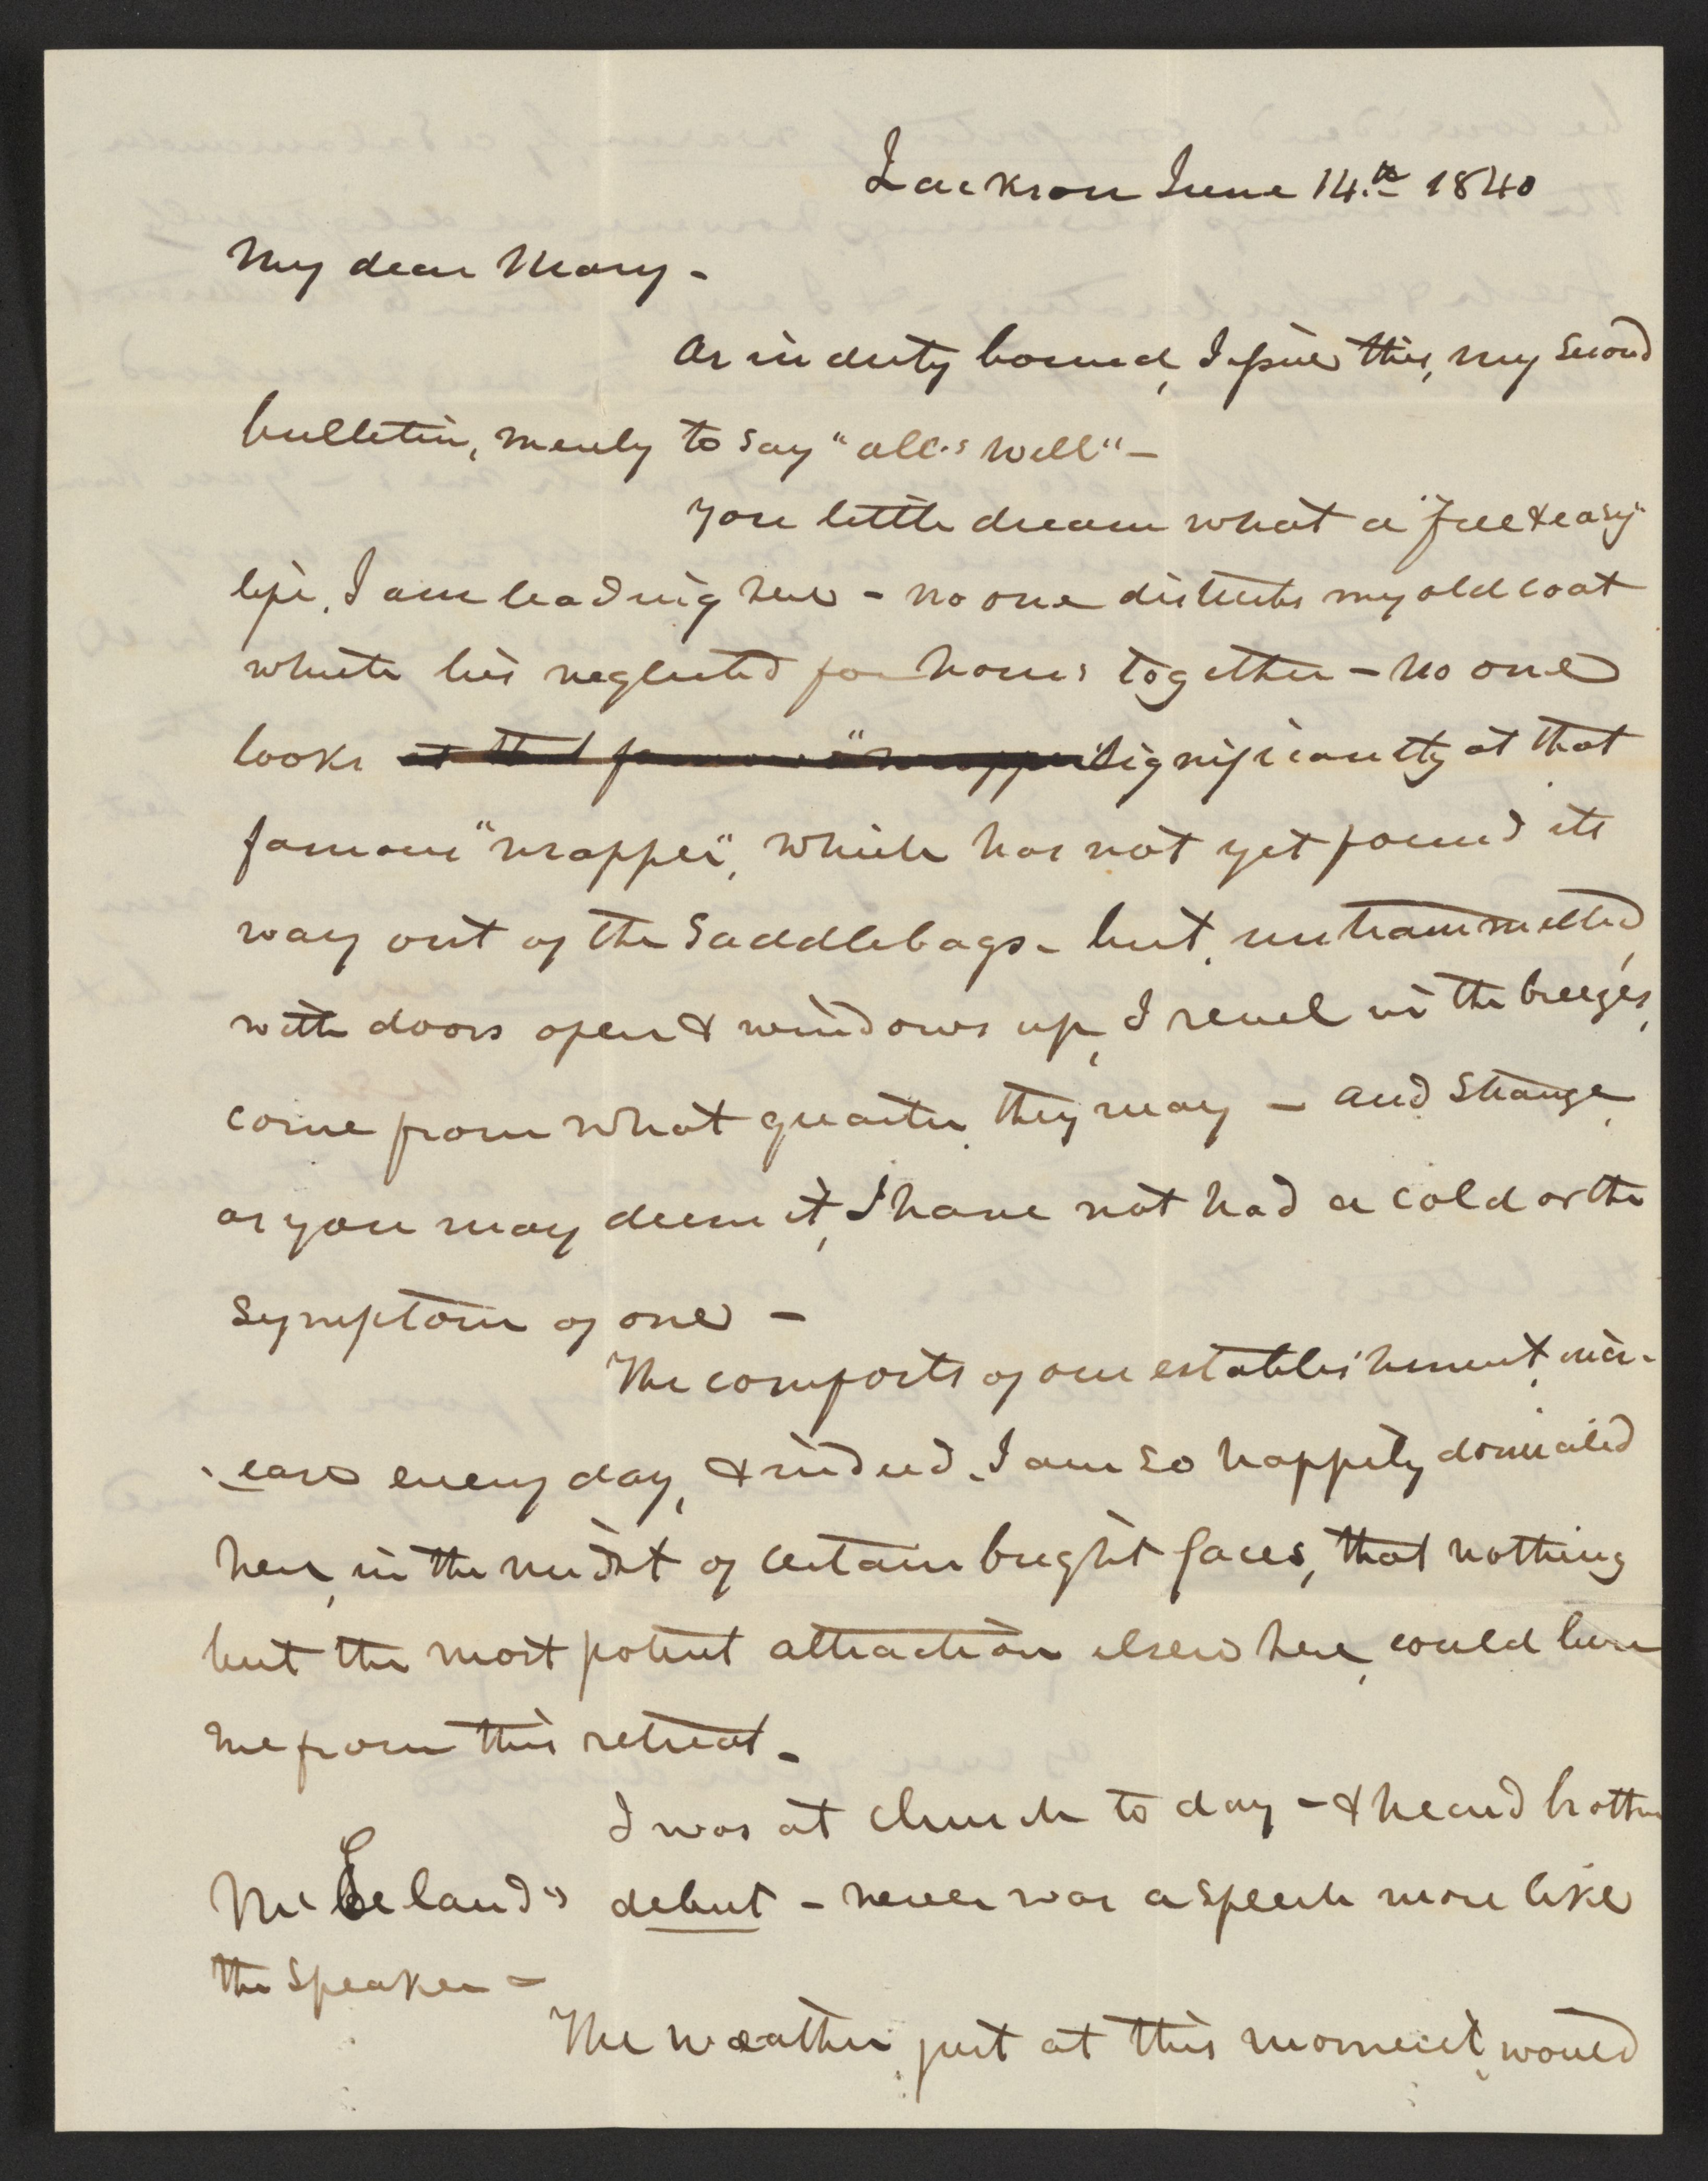 Jackson June 14.th 1840
My dear Mary -
As in duty bound, I issue this, my second
bulletin, merely to say "all's well" -
You little dream what a "free & easy"
life, I am leading here - no one disturbs my old coat
which lies neglected for hours together - no one
looks at that famous "wrapper" significantly at that
famous "wrapper", which has not yet found its
way out of the saddlebags - but, untrammelled,
with doors open & windows up, I revel in the breezes,
come from what quarter, they may - and strange,
as you may deem it, I have not had a cold or the
symptom of one -
The comforts of our establishment, incr-
-ease every day, & indeed, I am so happily domiciled
here, in the midst of certain bright faces, that nothing
but the most potent attraction elsewhere, could lure
me from this retreat -
I was at church to day - & heard brother
McLeland's debut - never was a speech more like
the speaker -
The weather, just at this moment, would